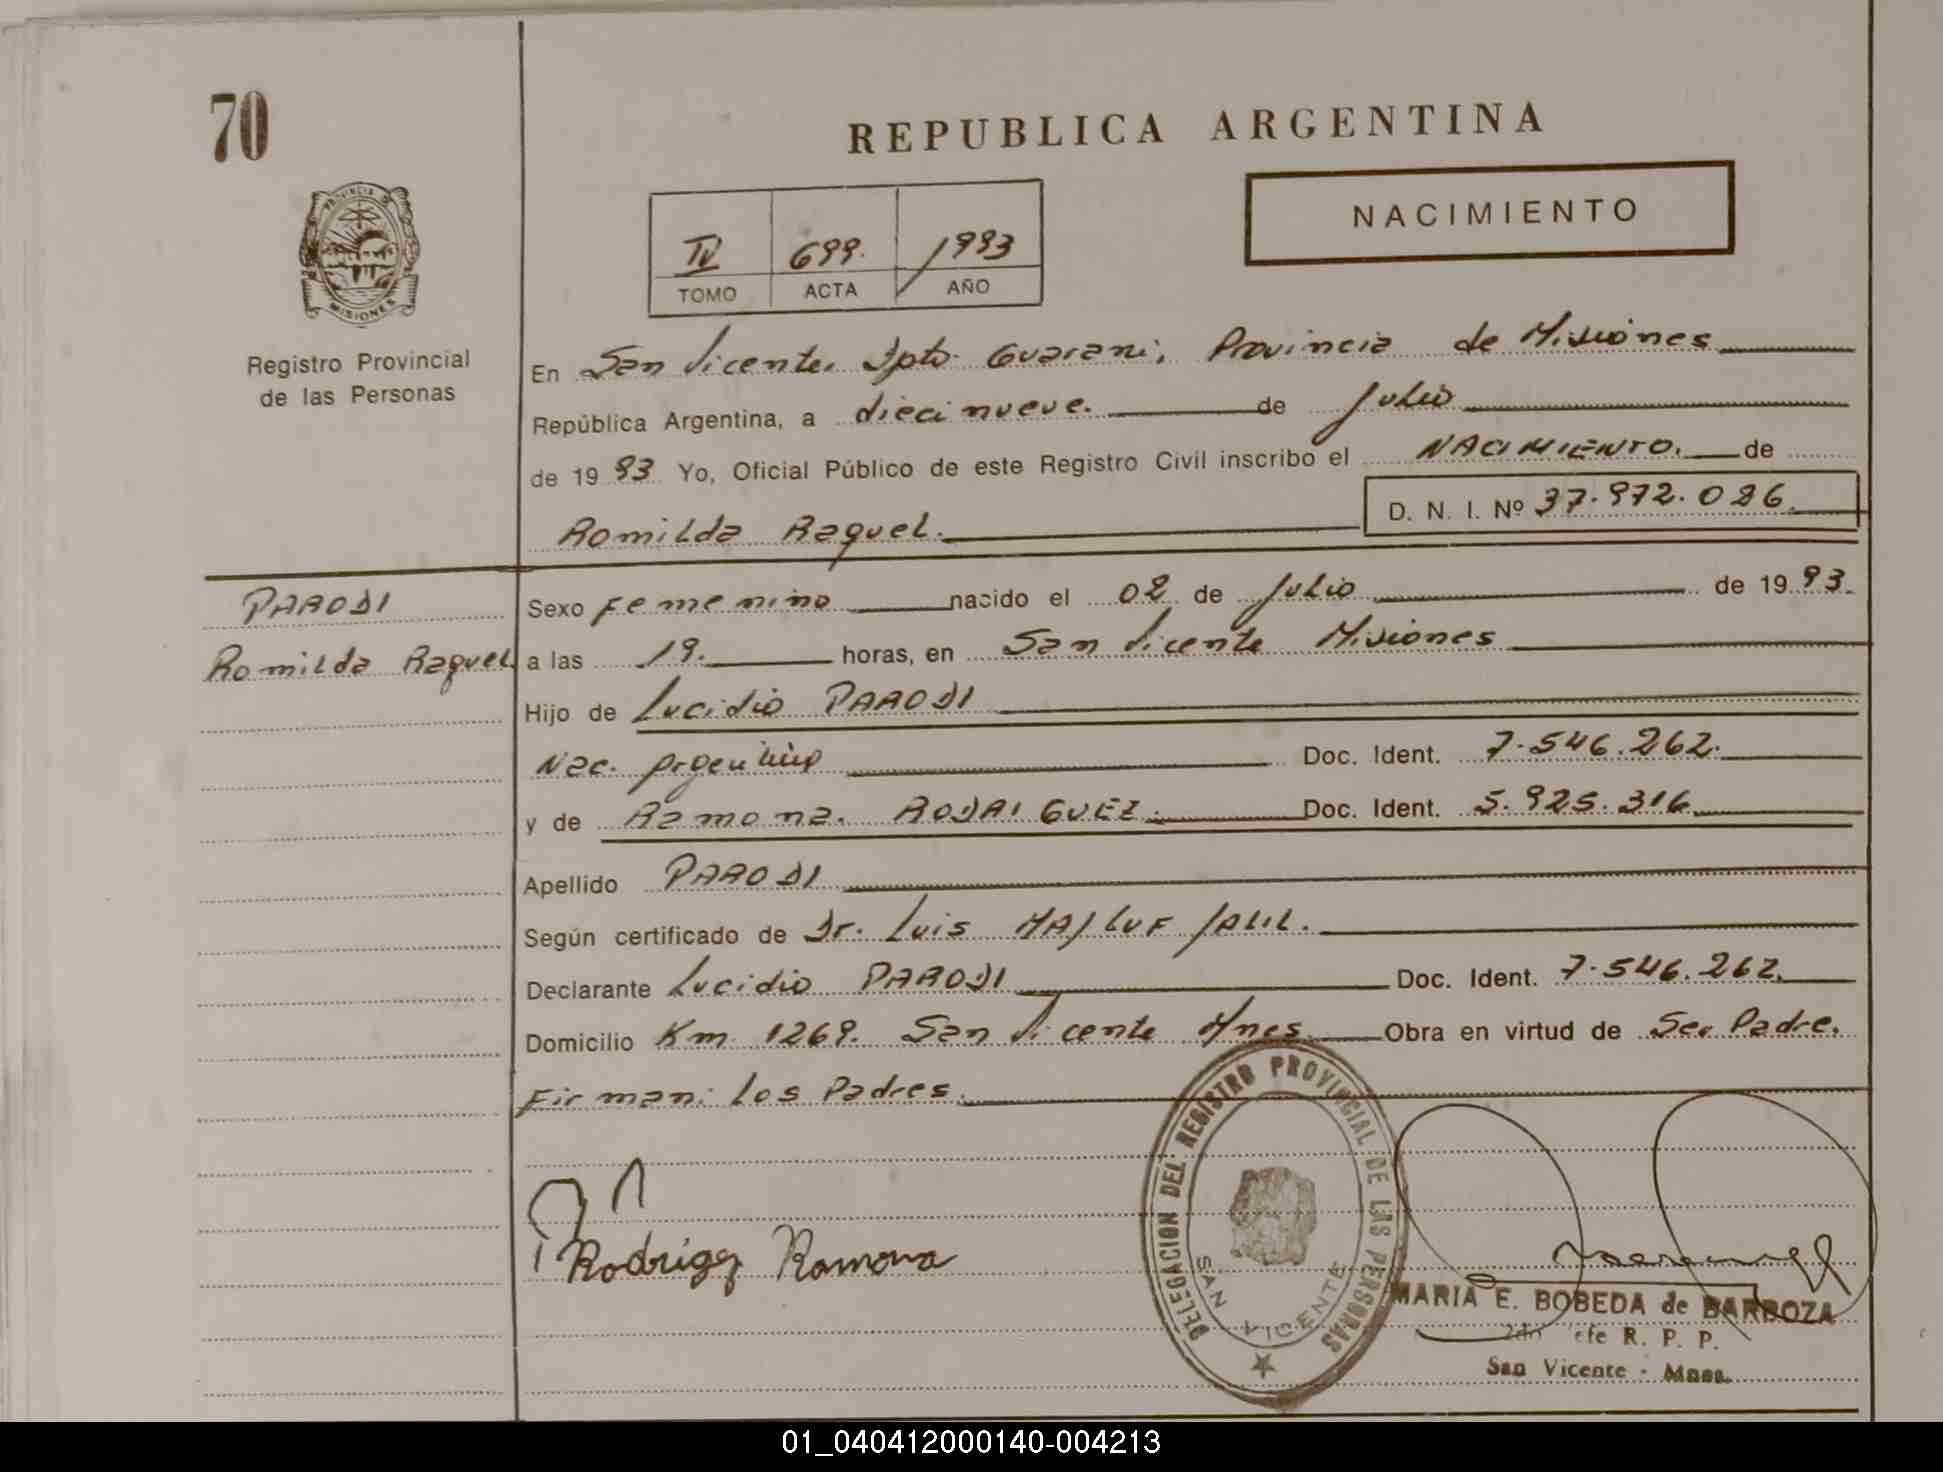 70
REPUBLICA ARGENTINA
NACIMIENTO
PROVINCIA DE
MISIONES
IV 699. 1993
TOMO ACTA AÑO
Registro Provincial
de las Personas
En San Vicente, Dpto. Guarani, Provincia de Misiones
República Argentina, a diecinueve. de Julio
de 19 93 Yo, Oficial Público de este Registro Civil inscribo el NACIMIENTO. de
D. N. I. Nº 37.972.026
Romilda Raquel.
PARODI
Romilda Raquel
Sexo Femenino nacido el 02 de Julio de 19 93.
a las 19. horas, en San Vicente Misiones
Hijo de Lucidio PARODI
Nac. Argentina Doc. Ident. 7.546.262.
y de Ramona. RODRIGUEZ. Doc. Ident. 5.925.316
Apellido PARODI
Según certificado de Dr. Luis MAJLUF JALIL.
Declarante Lucidio PARODI Doc. Ident. 7.546.262.
Domicilio Km 1269. San Vicente Mnes. Obra en virtud de Ser Padre.
Firman: Los Padres.
Rodrigz Ramona
DELEGACION DEL REGISTRO PROVINCIAL DE LAS PERSONAS
SAN VICENTE
MARIA E. BOBEDA de BARBOZA
2do efe R. P. P.
San Vicente - Mnes.
01_040412000140-004213